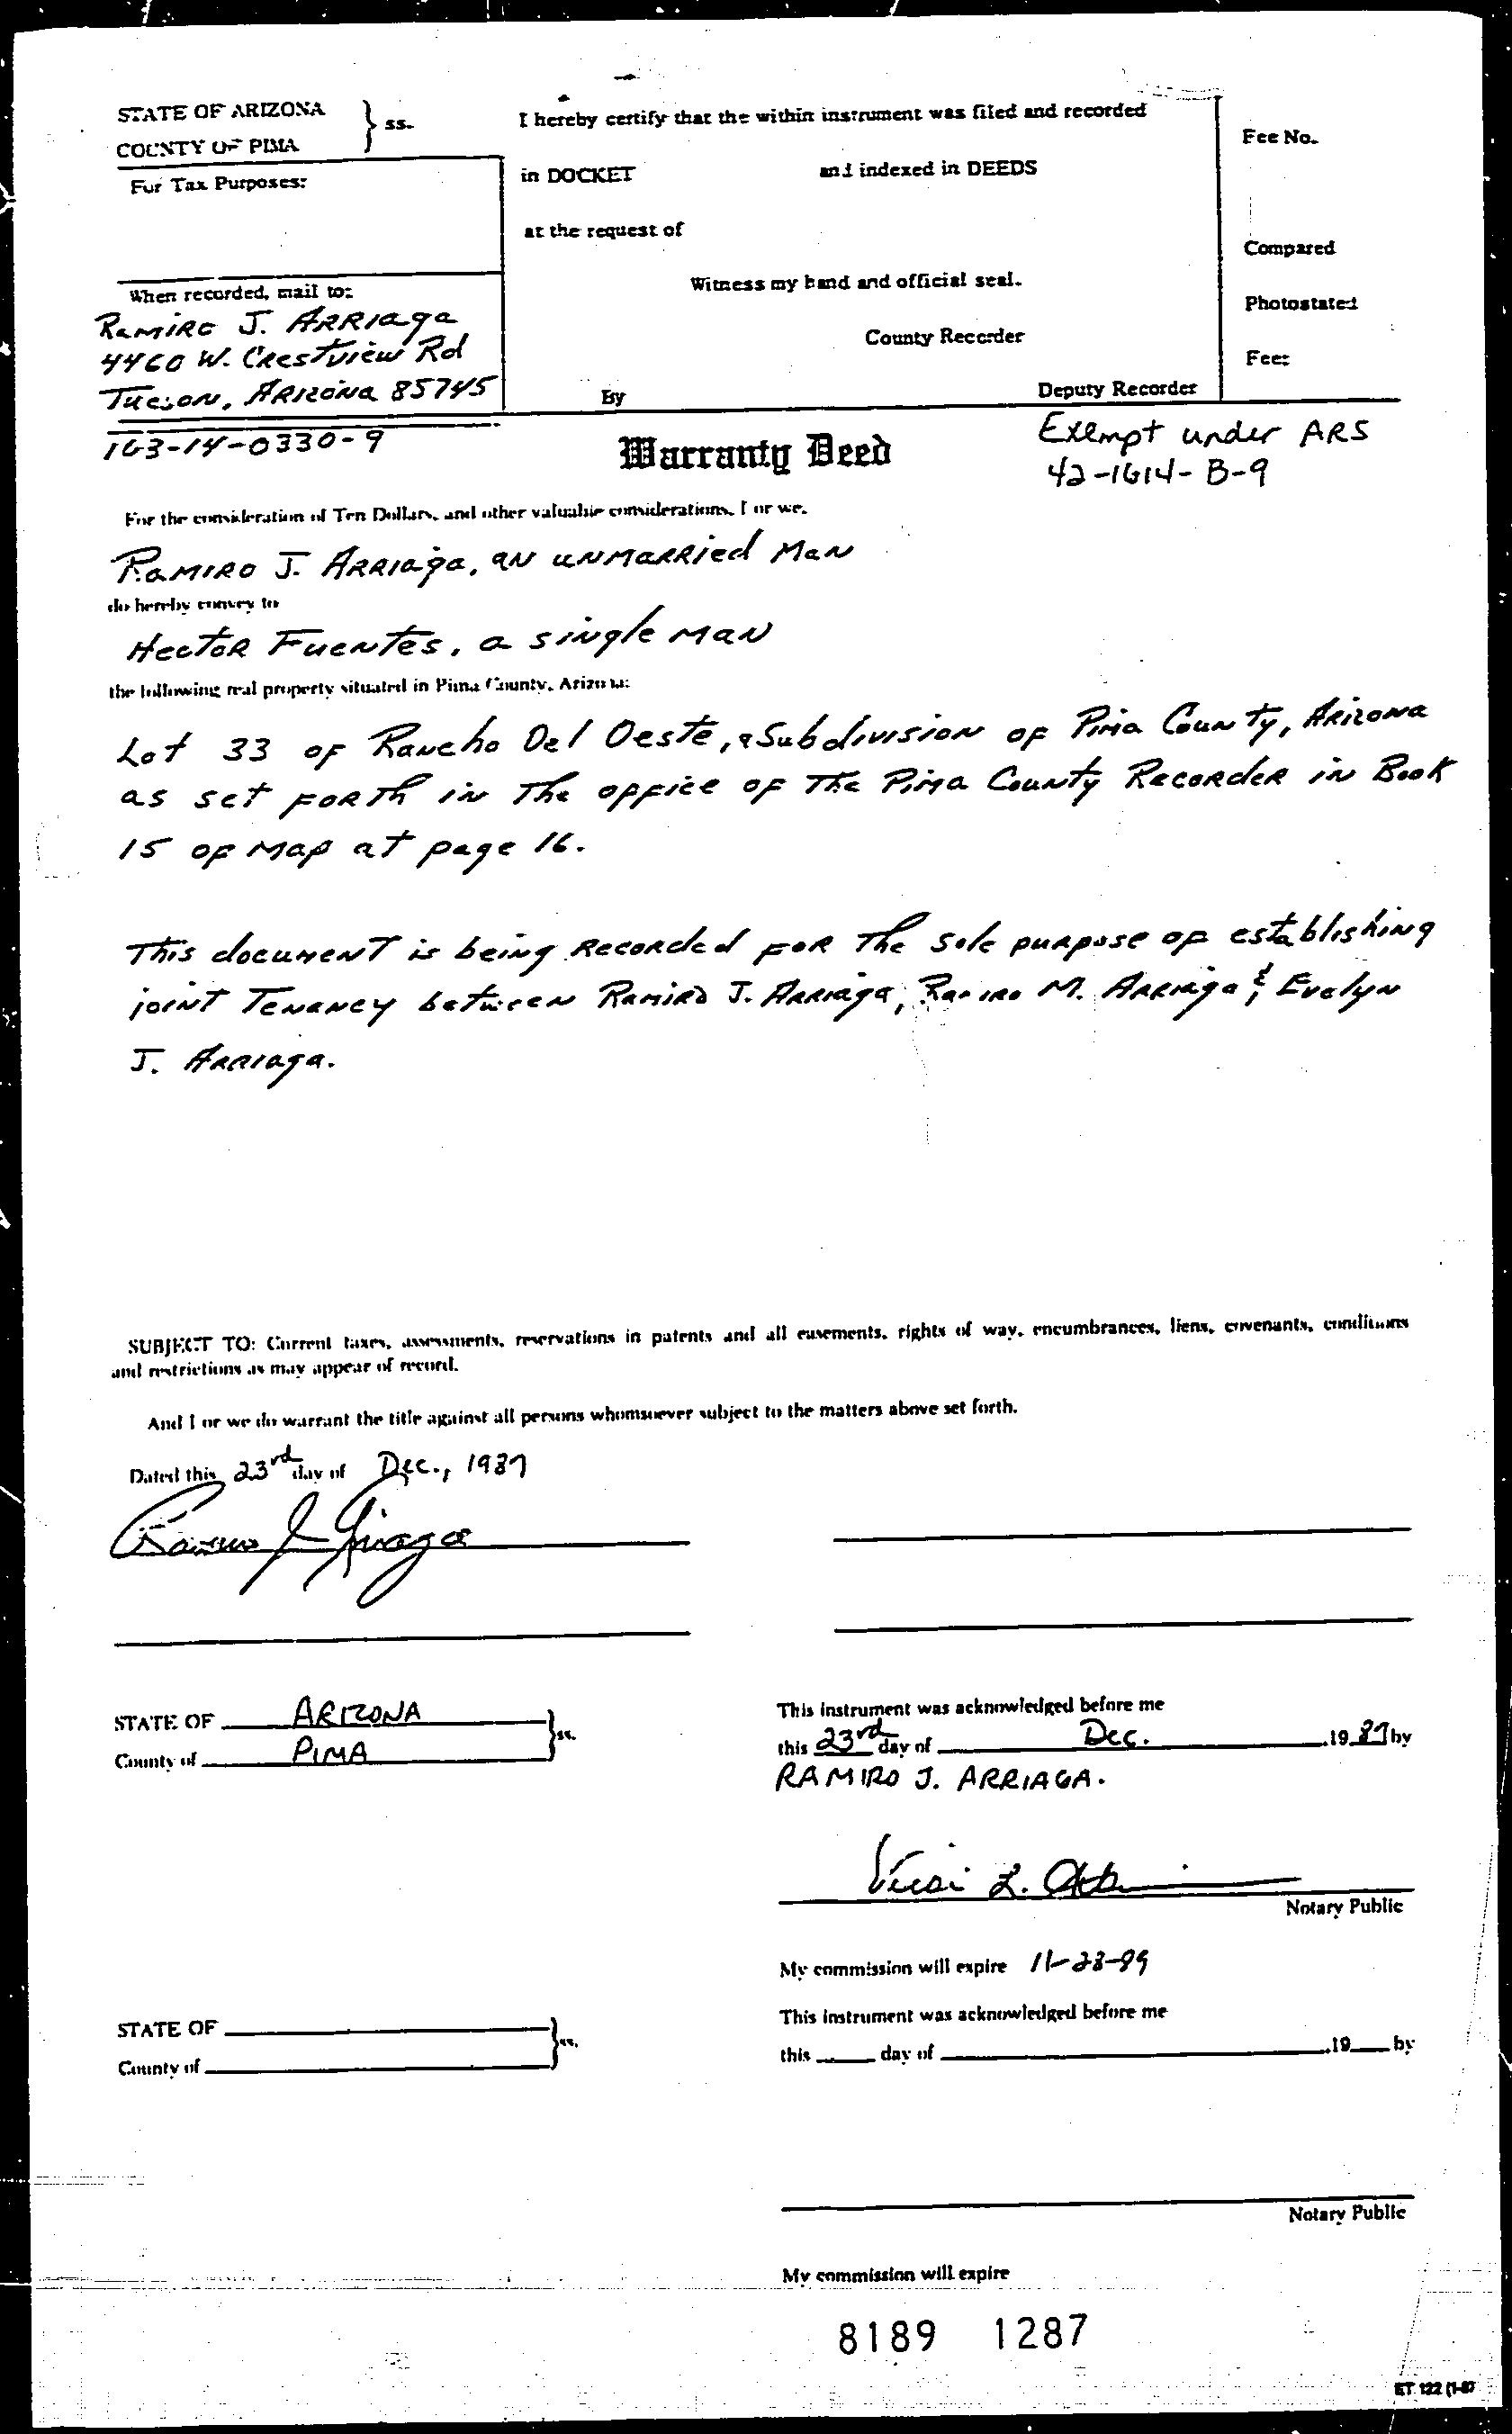 STATE OF ARIZONA
COUNTY OF PIMA
} ss.
For Tax Purposes:
When recorded, mail to:
Ramiro J. Arriaga
4460 W. Crestview Rd
Tucson, Arizona 85745
163-14-0330-9
I hereby certify that the within instrument was filed and recorded
in DOCKET and indexed in DEEDS
at the request of
Witness my hand and official seal.
County Recorder
By Deputy Recorder
Fee No.
Compared
Photostated
Fee:
Warranty Deed
Exempt under ARS
42-1614-B-9
For the consideration of Ten Dollars, and other valuable considerations, I or we,
Ramiro J. Arriaga, an unmarried man
do hereby convey to
Hector Fuentes, a single man
the following real property situated in Pima County, Arizona:
Lot 33 of Rancho Del Oeste, a Subdivision of Pima County, Arizona
as set forth in the office of the Pima County Recorder in Book
15 of Map at page 16.
This document is being recorded for the sole purpose of establishing
joint tenancy between Ramiro J. Arriaga, Ramiro M. Arriaga & Evelyn
J. Arriaga.
SUBJECT TO: Current taxes, assessments, reservations in patents and all easements, rights of way, encumbrances, liens, covenants, conditions
and restrictions as may appear of record.
And I or we do warrant the title against all persons whomsoever subject to the matters above set forth.
Dated this 23rd day of Dec., 1987
Ramiro J Arriaga
STATE OF ARIZONA
County of PIMA
} ss.
This instrument was acknowledged before me
this 23rd day of Dec. , 19 87 by
RAMIRO J. ARRIAGA.
L.
Notary Public
My commission will expire 11-28-89
STATE OF
County of
} ss.
This instrument was acknowledged before me
this day of , 19 by
Notary Public
My commission will expire
8189 1287
ET 122 (1-87